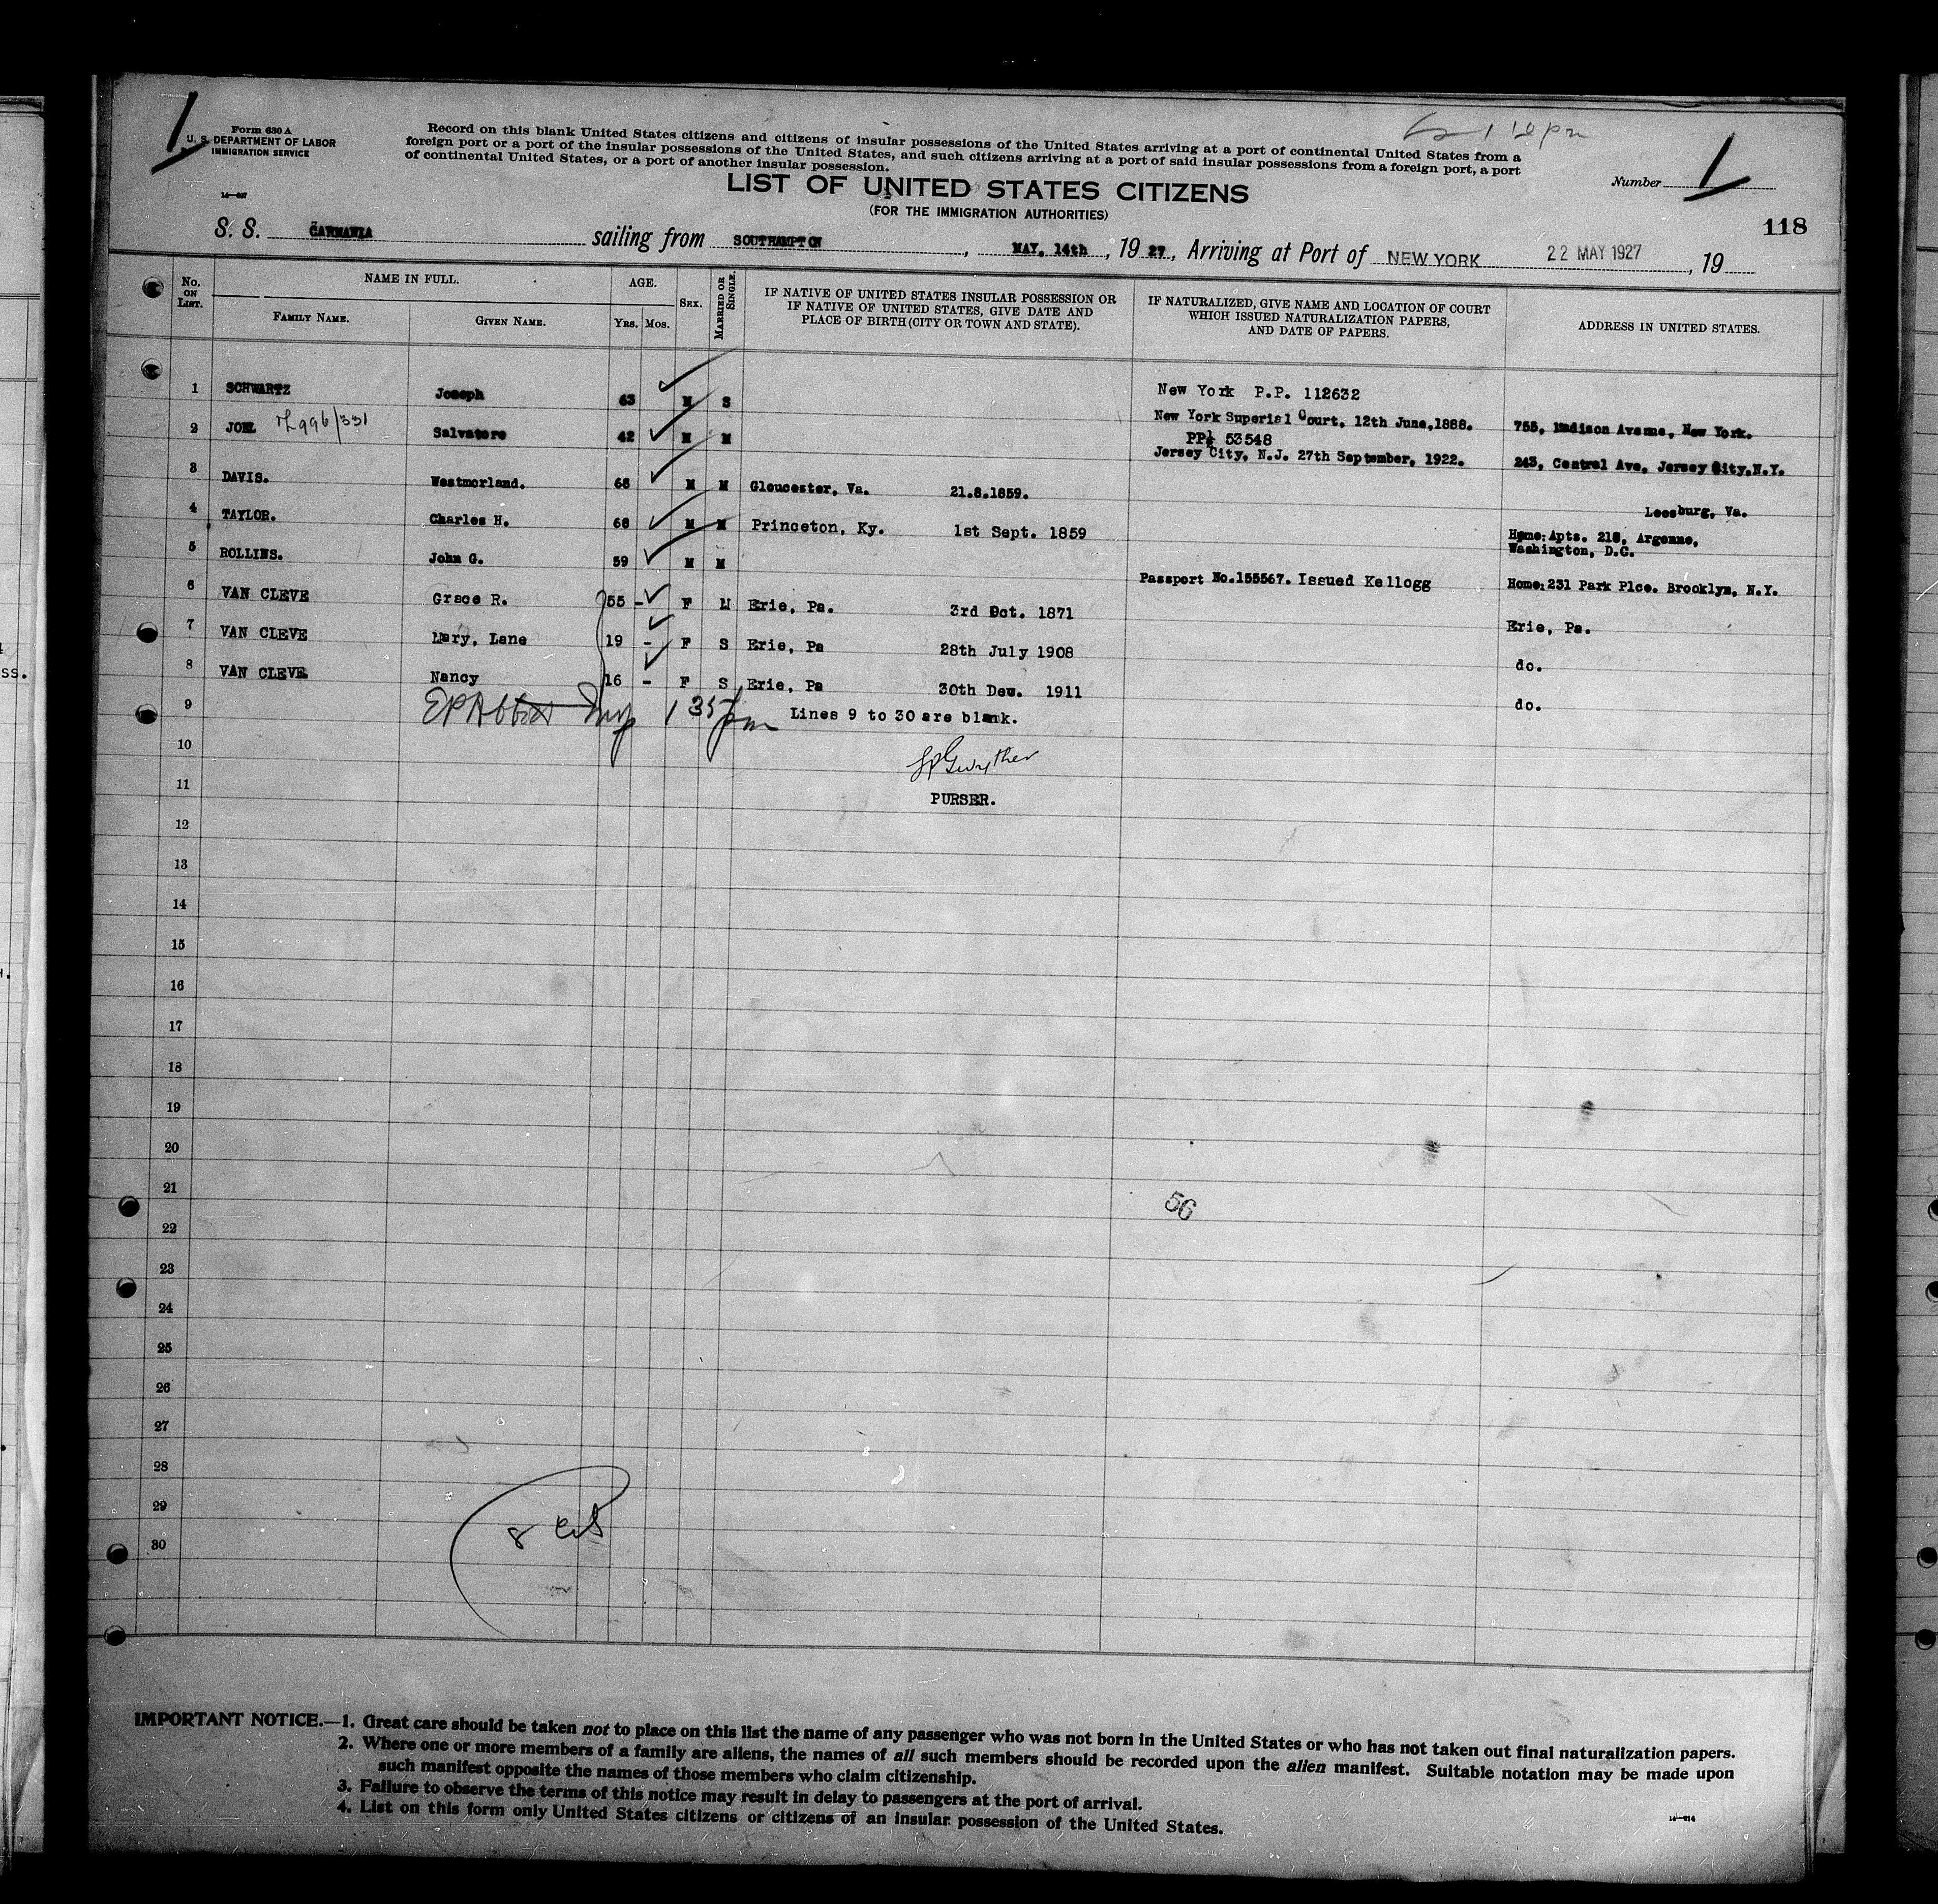 Form 630 A
U. S. DEPARTMENT OF LABOR
IMMIGRATION SERVICE
Record on this blank United States citizens and citizens of insular possessions of the United States arriving at a port of continental United States from a
foreign port or a port of the insular possessions of the United States, and such citizens arriving at a port of said insular possessions from a foreign port, a port
of continental United States, or a port of another insular possession.
LIST OF UNITED STATES CITIZENS
(FOR THE IMMIGRATION AUTHORITIES)
Number 1
118
S. S. CARMANIA sailing from SOUTHAMPTON, MAY, 14th, 19 27, Arriving at Port of NEW YORK 22 MAY 1927, 19
No. ON LIST. NAME IN FULL. FAMILY NAME. GIVEN NAME. AGE. Yrs. Mos. SEX. MARRIED OR SINGLE. IF NATIVE OF UNITED STATES INSULAR POSSESSION OR IF NATIVE OF UNITED STATES, GIVE DATE AND PLACE OF BIRTH (CITY OR TOWN AND STATE). IF NATURALIZED, GIVE NAME AND LOCATION OF COURT WHICH ISSUED NATURALIZATION PAPERS, AND DATE OF PAPERS. ADDRESS IN UNITED STATES.
1 SCHWARTZ Joseph 63 M S New York P.P. 112632
New York Superial Court, 12th June,1888. 755, Madison Avenue, New York.
2 JOEL 996/331 Salvatore 42 M M PP 53548
Jersey City, N.J. 27th September, 1922. 243, Central Ave, Jersey City,N.Y.
3 DAVIS. Westmorland. 68 M M Gloucester, Va. 21.8.1859. Leesburg, Va.
4 TAYLOR. Charles H. 68 M M Princeton, Ky. 1st Sept. 1859 Home:Apts. 216, Argonne,
Washington, D.C.
5 ROLLINS. John G. 59 M M Passport No.155567. Issued Kellogg Home:231 Park Plce. Brooklyn, N.Y.
6 VAN CLEVE Grace R. 55 - F M Erie, Pa. 3rd Oct. 1871 Erie, Pa.
7 VAN CLEVE Mary, Lane 19 - F S Erie, Pa 28th July 1908 do.
8 VAN CLEVE Nancy 16 - F S Erie, Pa 30th Dec. 1911 do.
9 1 35 pm Lines 9 to 30 are blank.
10
11 PURSER.
12
13
14
15
16
17
18
19
20
21
56
22
23
24
25
26
27
28
29
8 cits
30
IMPORTANT NOTICE.—1. Great care should be taken not to place on this list the name of any passenger who was not born in the United States or who has not taken out final naturalization papers.
2. Where one or more members of a family are aliens, the names of all such members should be recorded upon the alien manifest. Suitable notation may be made upon
such manifest opposite the names of those members who claim citizenship.
3. Failure to observe the terms of this notice may result in delay to passengers at the port of arrival.
4. List on this form only United States citizens or citizens of an insular possession of the United States.